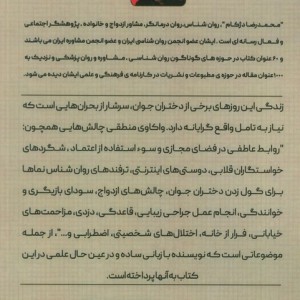 "محمدرضا دژکام"، روان شناس، روان درمانگر، مشاور ازدواج و خانواده، پژوهشگر اجتماعی
و فعال رسانه ای است. ایشان عضو انجمن روان شناسی ایران و عضو انجمن مشاوره ایران می باشند
و ۶۰ عنوان کتاب در حوزه های گوناگون روان شناسی، مشاوره و روان پزشکی و نزدیک به
۱۰۰۰ عنوان مقاله در حوزه ی مطبوعات و نشریات در کارنامه ی فرهنگی و علمی ایشان دیده می شود.
زندگی این روزهای برخی از دختران جوان، سرشار از بحران‌هایی است که
نیاز به تامل واقع گرایانه دارد. واکاوی منطقی چالش‌هایی همچون:
"روابط عاطفی در فضای مجازی و سوء استفاده از اعتماد، شگردهای
خواستگاران قلابی، دوستی‌های اینترنتی، ترفندهای روان شناس نماها
برای گول زدن دختران جوان، چالش‌های ازدواج، سودای بازیگری و
خوانندگی، انجام عمل جراحی زیبایی، قاعدگی، دزدی، مزاحمت‌های
خیابانی، فرار از خانه، اختلال‌های شخصیتی، اضطرابی و..."، از جمله
موضوعاتی است که نویسنده با زبانی ساده و در عین حال علمی در این
کتاب به آنها پرداخته است.